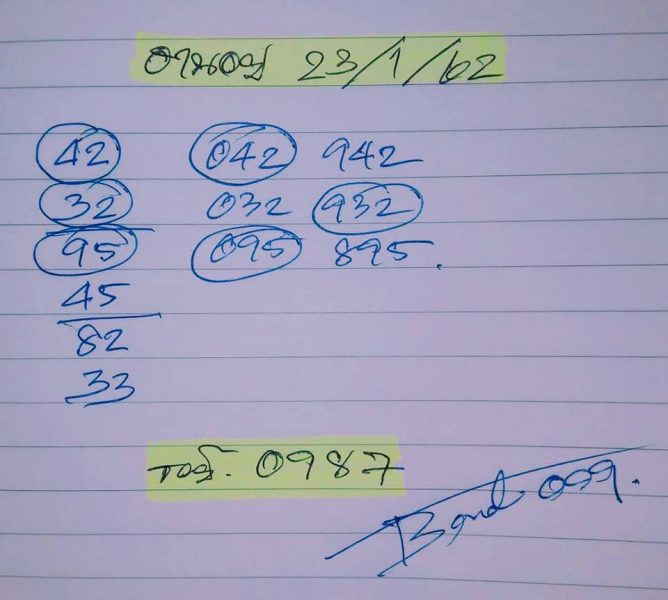 ฮานอย 23/1/62
42 042 942
32 032 932
95 095 895.
45
82
33
0987
Bond 099.